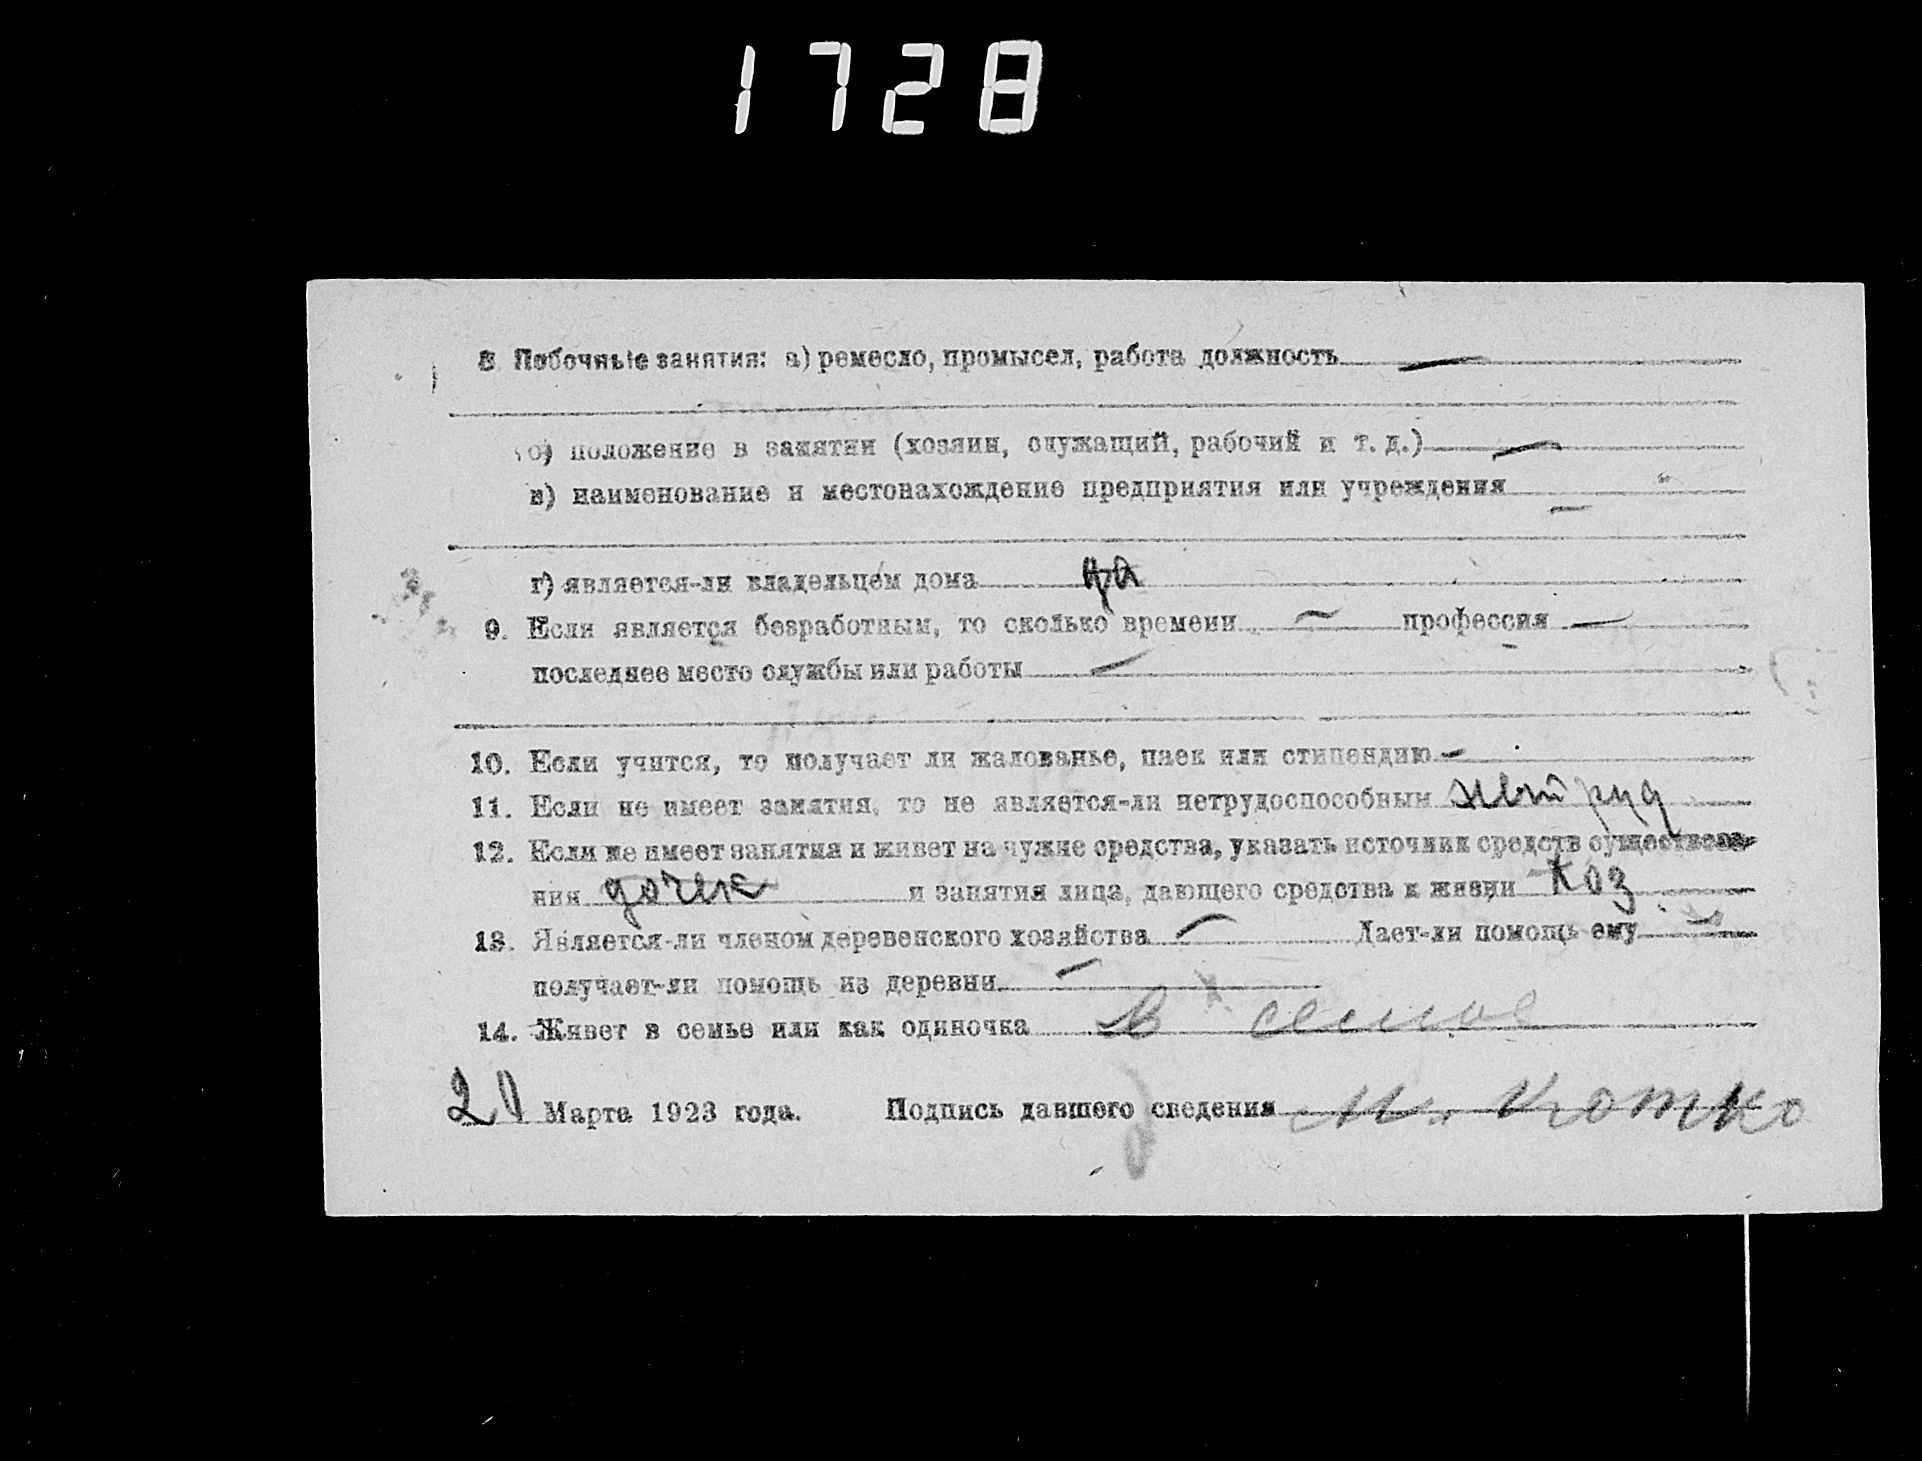 1728
8. Побочные занятия: а) ремесло, промысел, работа должность —
б) положение в занятии (хозяин, служащий, рабочий и т. д.) —
в) наименование и местонахождение предприятия или учреждения
—
г) является-ли владельцем дома да
9. Если является безработным, то сколько времени — профессия —
последнее место службы или работы —
10. Если учится, то получает ли жалованье, паек или стипендию —
11. Если не имеет занятия, то не является-ли нетрудоспособным нетруд
12. Если не имеет занятия и живет на чужие средства, указать источник средств существова-
ния и занятия лица, дающего средства к жизни
13. Является-ли членом деревенского хозяйства — Дает-ли помощь ему —
получает-ли помощь из деревни —
14. Живет в семье или как одиночка В семье
20 Марта 1923 года. Подпись давшего сведения М. Котко